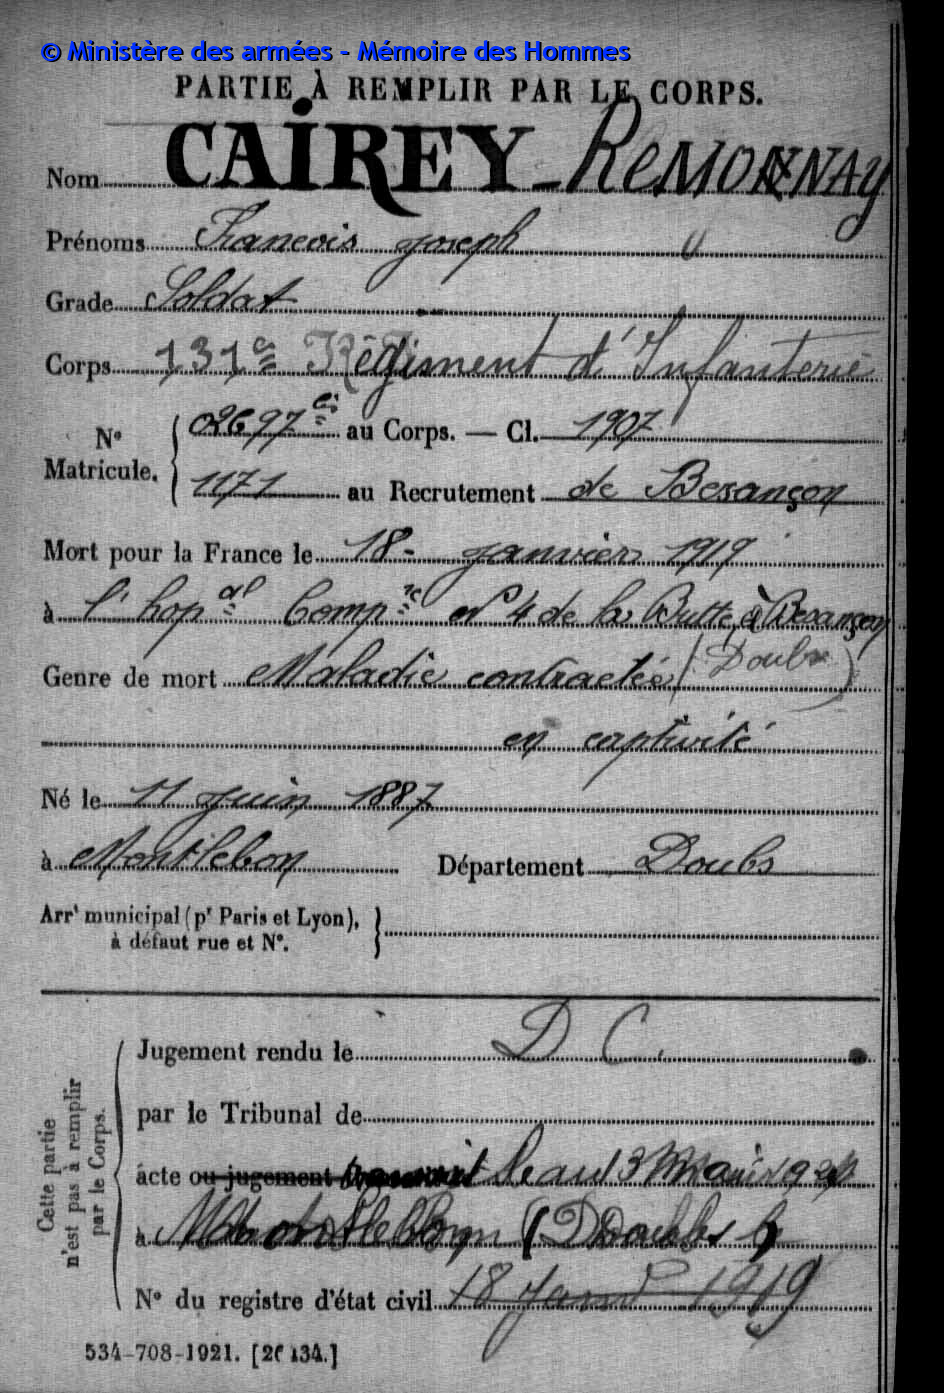 © Ministère des armées - Mémoire des Hommes
PARTIE À REMPLIR PAR LE CORPS.
Nom CAIREY-REMONNAY
Prénoms François Joseph
Grade Soldat
Corps 131e Régiment d'Infanterie
N° Matricule. 02697 au Corps. — Cl. 1907
1171 au Recrutement de Besançon
Mort pour la France le 18 janvier 1919
à l'hopal Compre n° 4 de la Butte à Besançon
(Doubs)
Genre de mort Maladie contractée
en captivité
Né le 11 juin 1887
à Montlebon Département Doubs
Arrt municipal (pr Paris et Lyon), à défaut rue et N°.
Cette partie n'est pas à remplir par le Corps.
Jugement rendu le D C.
par le Tribunal de
acte ou jugement
à Montlebon (Doubs)
N° du registre d'état civil 18 Janv 1919
534-708-1921. [26134.]